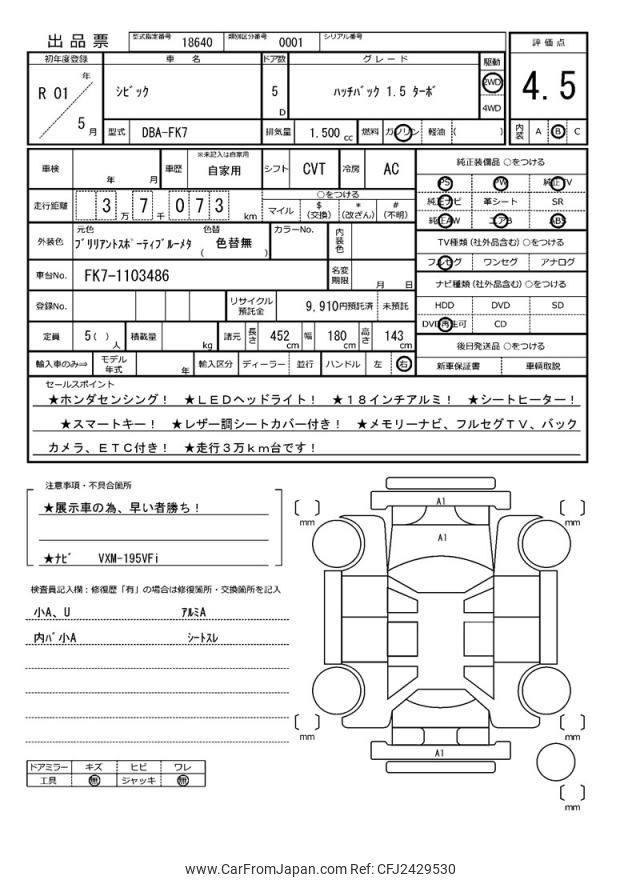 出品票 型式指定番号 18640 類別区分番号 0001 シリアル番号
初年度登録 車名 ドア数 グレード 駆動 評価点
R 01 年 5 月 シビック 5 D ハッチバック 1.5 ターボ 2WD 4WD 4.5
型式 DBA-FK7 排気量 1.500 cc 燃料 ガソリン 軽油 ( ) 内装 A B C
車検 年 月 車歴 ※未記入は自家用 自家用 シフト CVT 冷房 AC 純正装備品 ○をつける
PS PW 純正TV
走行距離 3 万 7 千 0 7 3 km ○をつける マイル $ (交換) * (改ざん) # (不明) 純正ナビ 革シート SR
純正AW エアB ABS
外装色 元色 ブリリアントスポーティブルーメタ 色替 ( 色替無 ) カラーNo. 内装色 TV種類 (社外品含む) ○をつける
フルセグ ワンセグ アナログ
車台No. FK7-1103486 名変期限 月 日 ナビ種類 (社外品含む) ○をつける
登録No. リサイクル預託金 9,910円預託済 未預託 HDD DVD SD
DVD再生可 CD
定員 5( ) 人 積載量 kg 諸元 長さ 452 cm 幅 180 cm 高さ 143 cm 後日発送品 ○をつける
輸入車のみ⇒ モデル年式 年 輸入区分 ディーラー 並行 ハンドル 左 右 新車保証書 車輌取説
セールスポイント
★ホンダセンシング！ ★ＬＥＤヘッドライト！ ★１８インチアルミ！ ★シートヒーター！
★スマートキー！ ★レザー調シートカバー付き！ ★メモリーナビ、フルセグＴＶ、バック
カメラ、ＥＴＣ付き！ ★走行３万ｋｍ台です！
注意事項・不具合箇所
★展示車の為、早い者勝ち！
★ナビ VXM-195VFi
検査員記入欄：修復歴「有」の場合は修復箇所・交換箇所を記入
小A、U アルミA
内バ小A シートスレ
ドアミラー キズ ヒビ ワレ
工具 無 ジャッキ 無
A1
mm mm
A1
mm mm
A1
mm
www.CarFromJapan.com Ref: CFJ2429530